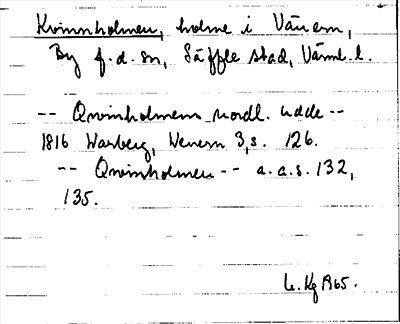 Kvinnholmen, holme i Vänern,
By f.d. sn, Säffle stad, Värml. l.
-- Qvinholmens nordl. udde --
1816 Warberg, Wenern 3, s. 126.
-- Qvinholmen -- a.a.s. 132,
135.
Kg 1965.